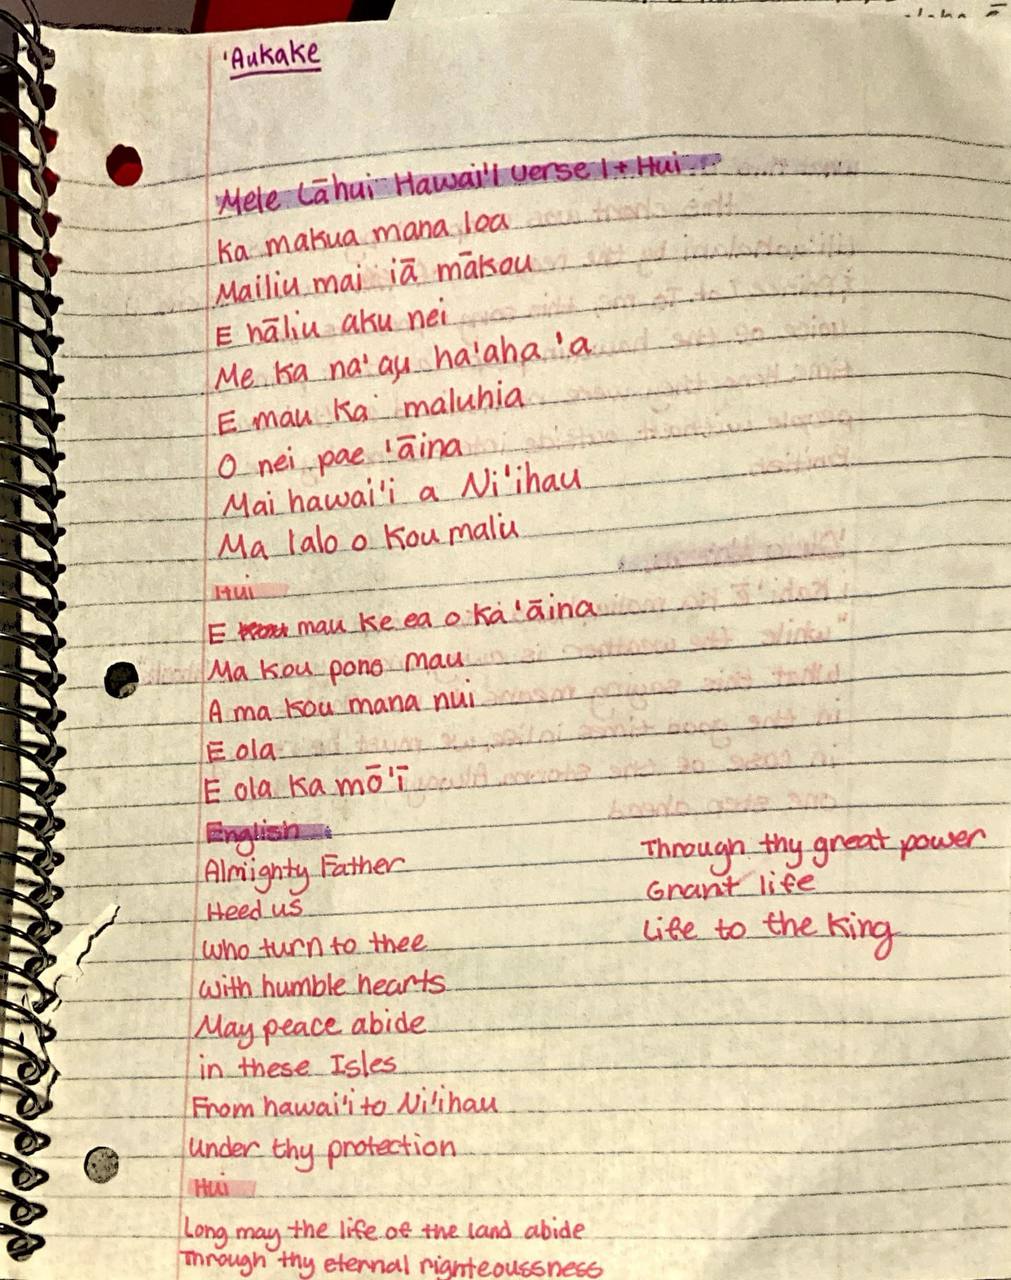 'Aukake
Mele Lāhui Hawai'i verse 1 + Hui
Ka makua mana loa
Mailiu mai iā mākou
E hāliu aku nei
Me ka na'au ha'aha'a
E mau ka maluhia
O nei pae 'āina
Mai hawai'i a Ni'ihau
Ma lalo o kou malu
Hui
E mau ke ea o ka 'āina
Ma kou pono mau
A ma kou mana nui
E ola
E ola ka mō'ī
English
Almighty Father
Heed us
who turn to thee
with humble hearts
May peace abide
in these Isles
From hawai'i to Ni'ihau
under thy protection
Hui
Long may the life of the land abide
Through thy eternal righteoussness
Through thy great power
Grant life
Life to the king